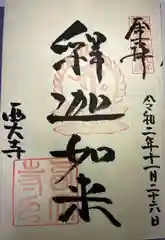 奉拝
令和二年十一月二十六日
釋迦如来
雲大寺